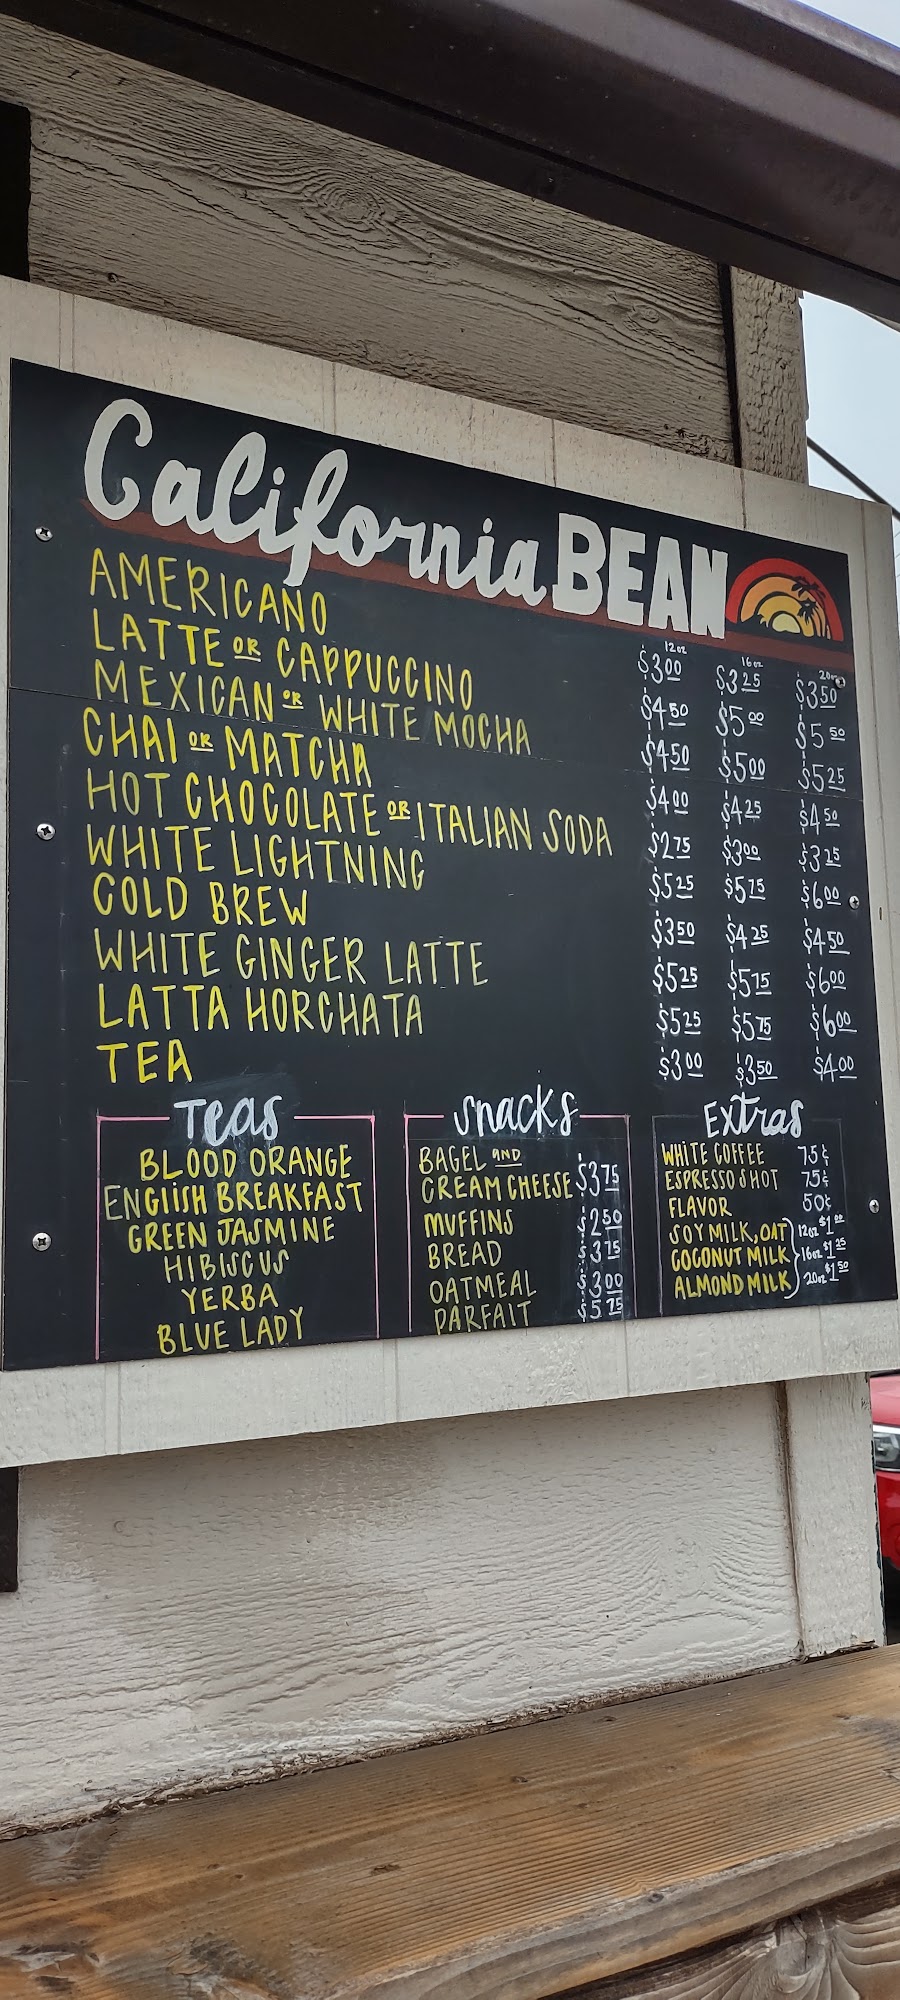 California BEAN
12oz 16oz 20oz
AMERICANO $3.00 $3.25 $3.50
LATTE OR CAPPUCCINO $4.50 $5.00 $5.50
MEXICAN OR WHITE MOCHA $4.50 $5.00 $5.25
CHAI OR MATCHA $4.00 $4.25 $4.50
HOT CHOCOLATE OR ITALIAN SODA $2.75 $3.00 $3.25
WHITE LIGHTNING $5.25 $5.75 $6.00
COLD BREW $3.50 $4.25 $4.50
WHITE GINGER LATTE $5.25 $5.75 $6.00
LATTA HORCHATA $5.25 $5.75 $6.00
TEA $3.00 $3.50 $4.00
Teas
BLOOD ORANGE
ENGliSH BREAKFAST
GREEN JASMINE
HIBISCUS
YERBA
BLUE LADY
Snacks
BAGEL AND
CREAM CHEESE $3.75
MUFFINS $2.50
BREAD $3.75
OATMEAL $3.00
PARFAIT $5.75
Extras
WHITE COFFEE 75¢
ESPRESSO SHOT 75¢
FLAVOR 50¢
SOY MILK, OAT 12oz $1.00
COCONUT MILK 16oz $1.25
ALMOND MILK 20oz $1.50